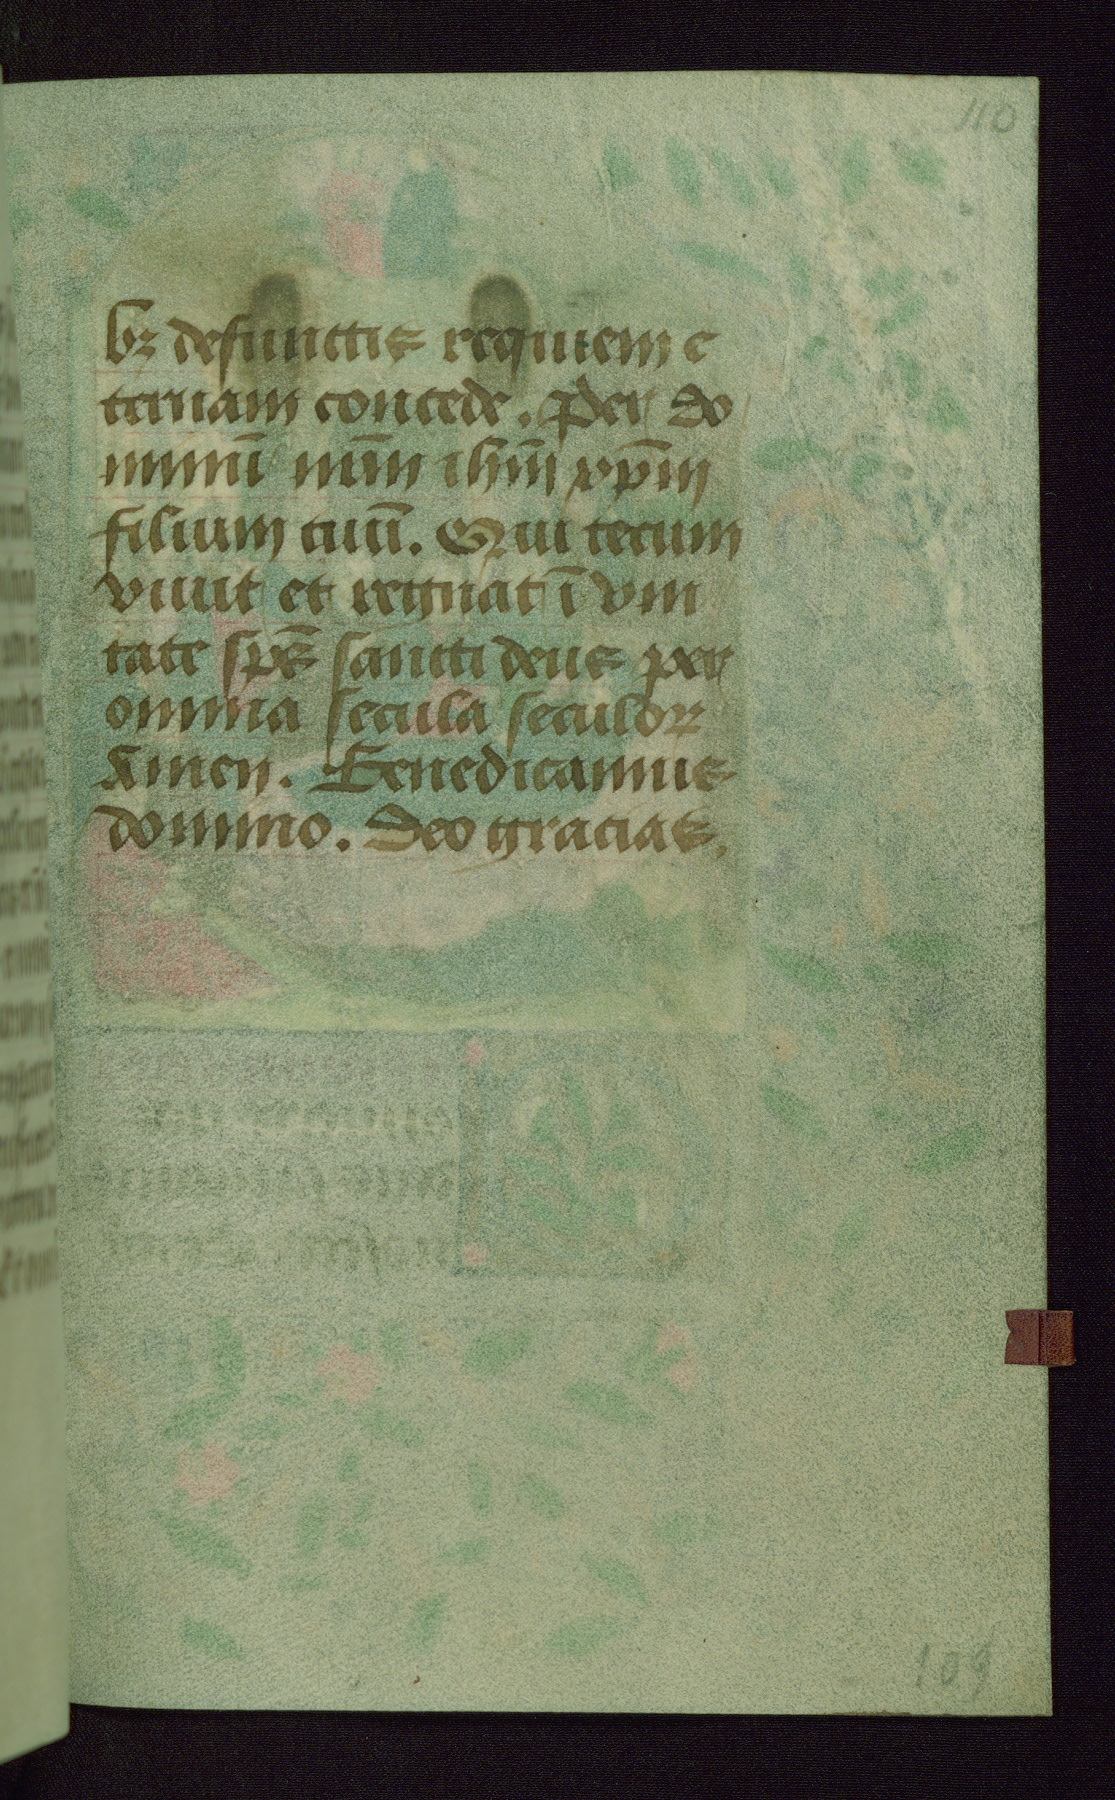 110
bꝫ defunctis requiem e
ternam concede. Per do
minū nr̄m ihm̄ xp̄m
filium tuū. Qui tecum
viuit et regnat ī vni
tate sp̄s sancti deus per
omnia secula seculoꝝ
Amen. Benedicamus
domino. Deo gracias,
109